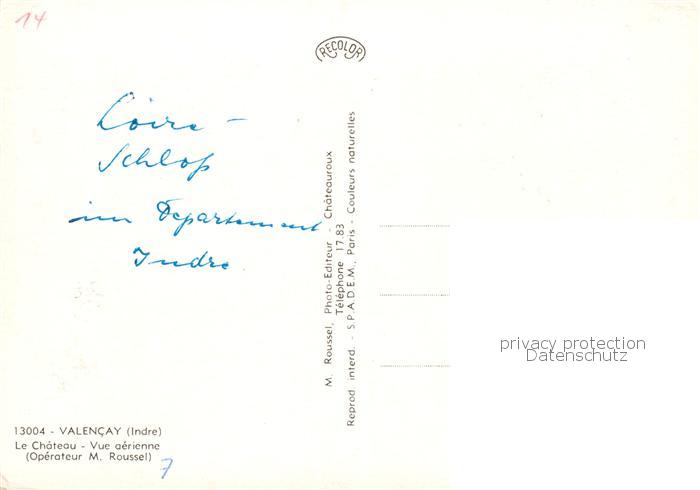 14
RECOLOR
Loire -
Schloß
im Departement
Indre
M. Roussel, Photo-Editeur - Châteauroux
Téléphone 17.83
Reprod. interd. - S.P.A.D.E.M., Paris - Couleurs naturelles
privacy protection
Datenschutz
13004 - VALENÇAY (Indre)
Le Château - Vue aérienne
(Opérateur M. Roussel)
7